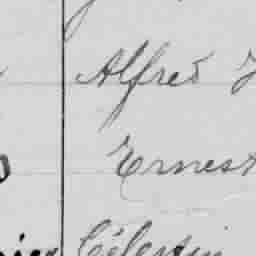 Alfred
Ernest
Célestin